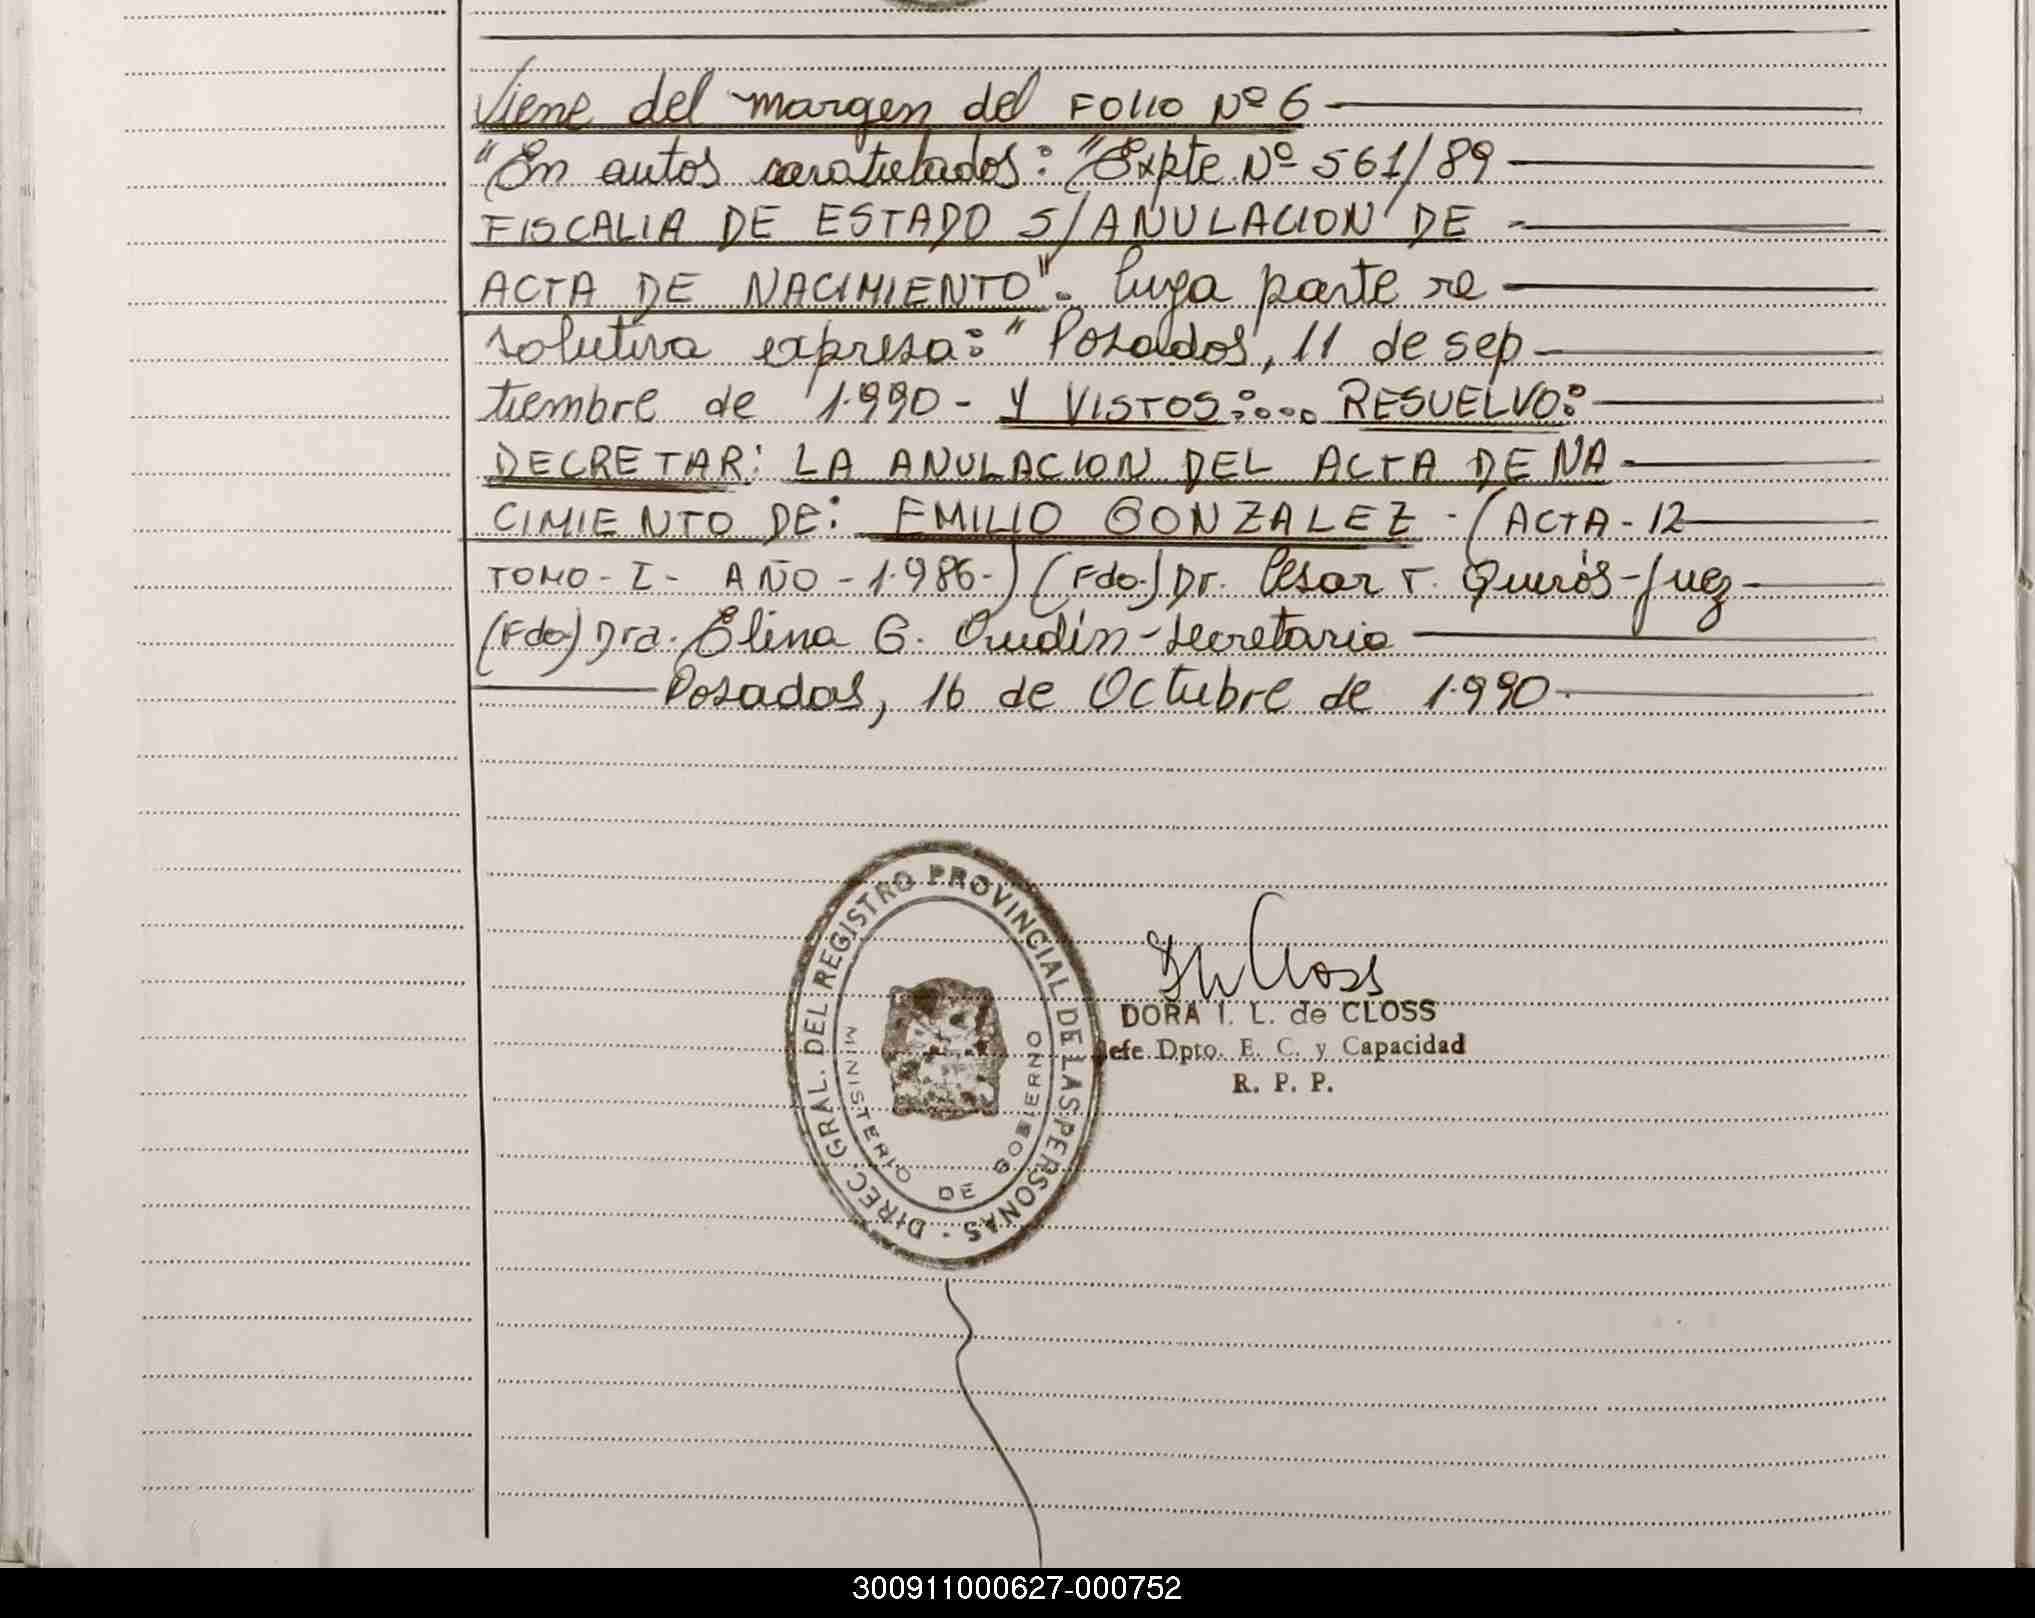 Viene del margen del FOLIO Nº 6
"En autos caratulados: "Expte. Nº 561/89
FISCALIA DE ESTADO S/ANULACION DE
ACTA DE NACIMIENTO". Cuya parte re
solutiva expresa: "Posadas, 11 de sep
tiembre de 1.990- Y VISTOS:... RESUELVO:
DECRETAR: LA ANULACION DEL ACTA DE NA
CIMIENTO DE: EMILIO GONZALEZ - (ACTA-12
TOMO-I- AÑO-1.986-) (Fdo.) Dr. Cesar T. Quirós-Juez-
(Fdo) Dra. Elina G. -Secretaria
Posadas, 16 de Octubre de 1.990-
DIREC. GRAL. DEL REGISTRO PROVINCIAL DE LAS PERSONAS.
MINISTERIO DE GOBIERNO
Closs
DORA I. L. de CLOSS
Jefe Dpto. E. C. y Capacidad
R. P. P.
300911000627-000752